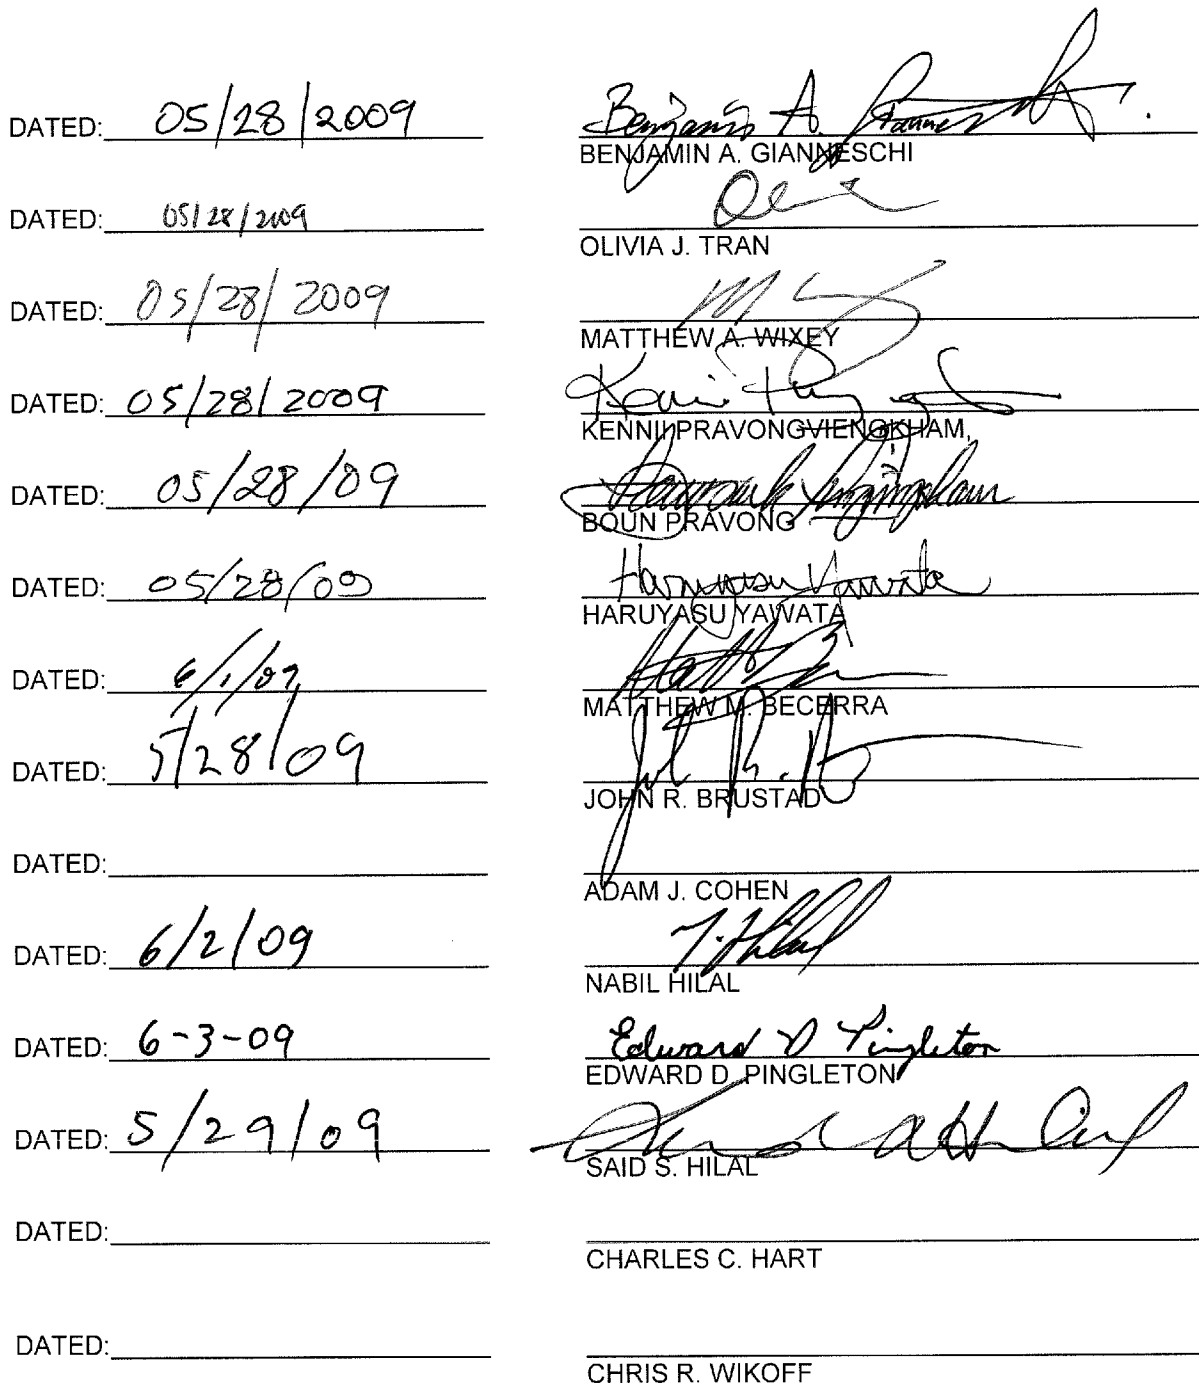 DATED: 05/28/2009 Benjamin A. Gianneschi
BENJAMIN A. GIANNESCHI
DATED: 05/28/2009
OLIVIA J. TRAN
DATED: 05/28/2009
MATTHEW A. WIXEY
DATED: 05/28/2009
KENNII PRAVONGVIENGKHAM
DATED: 05/28/09
BOUN PRAVONG
DATED: 05/28/09 Haruyasu Yawata
HARUYASU YAWATA
DATED: 6/1/09
MATTHEW M. BECERRA
DATED: 5/28/09
JOHN R. BRUSTAD
DATED:
ADAM J. COHEN
DATED: 6/2/09 N. Hilal
NABIL HILAL
DATED: 6-3-09 Edward D Pingleton
EDWARD D. PINGLETON
DATED: 5/29/09
SAID S. HILAL
DATED:
CHARLES C. HART
DATED:
CHRIS R. WIKOFF